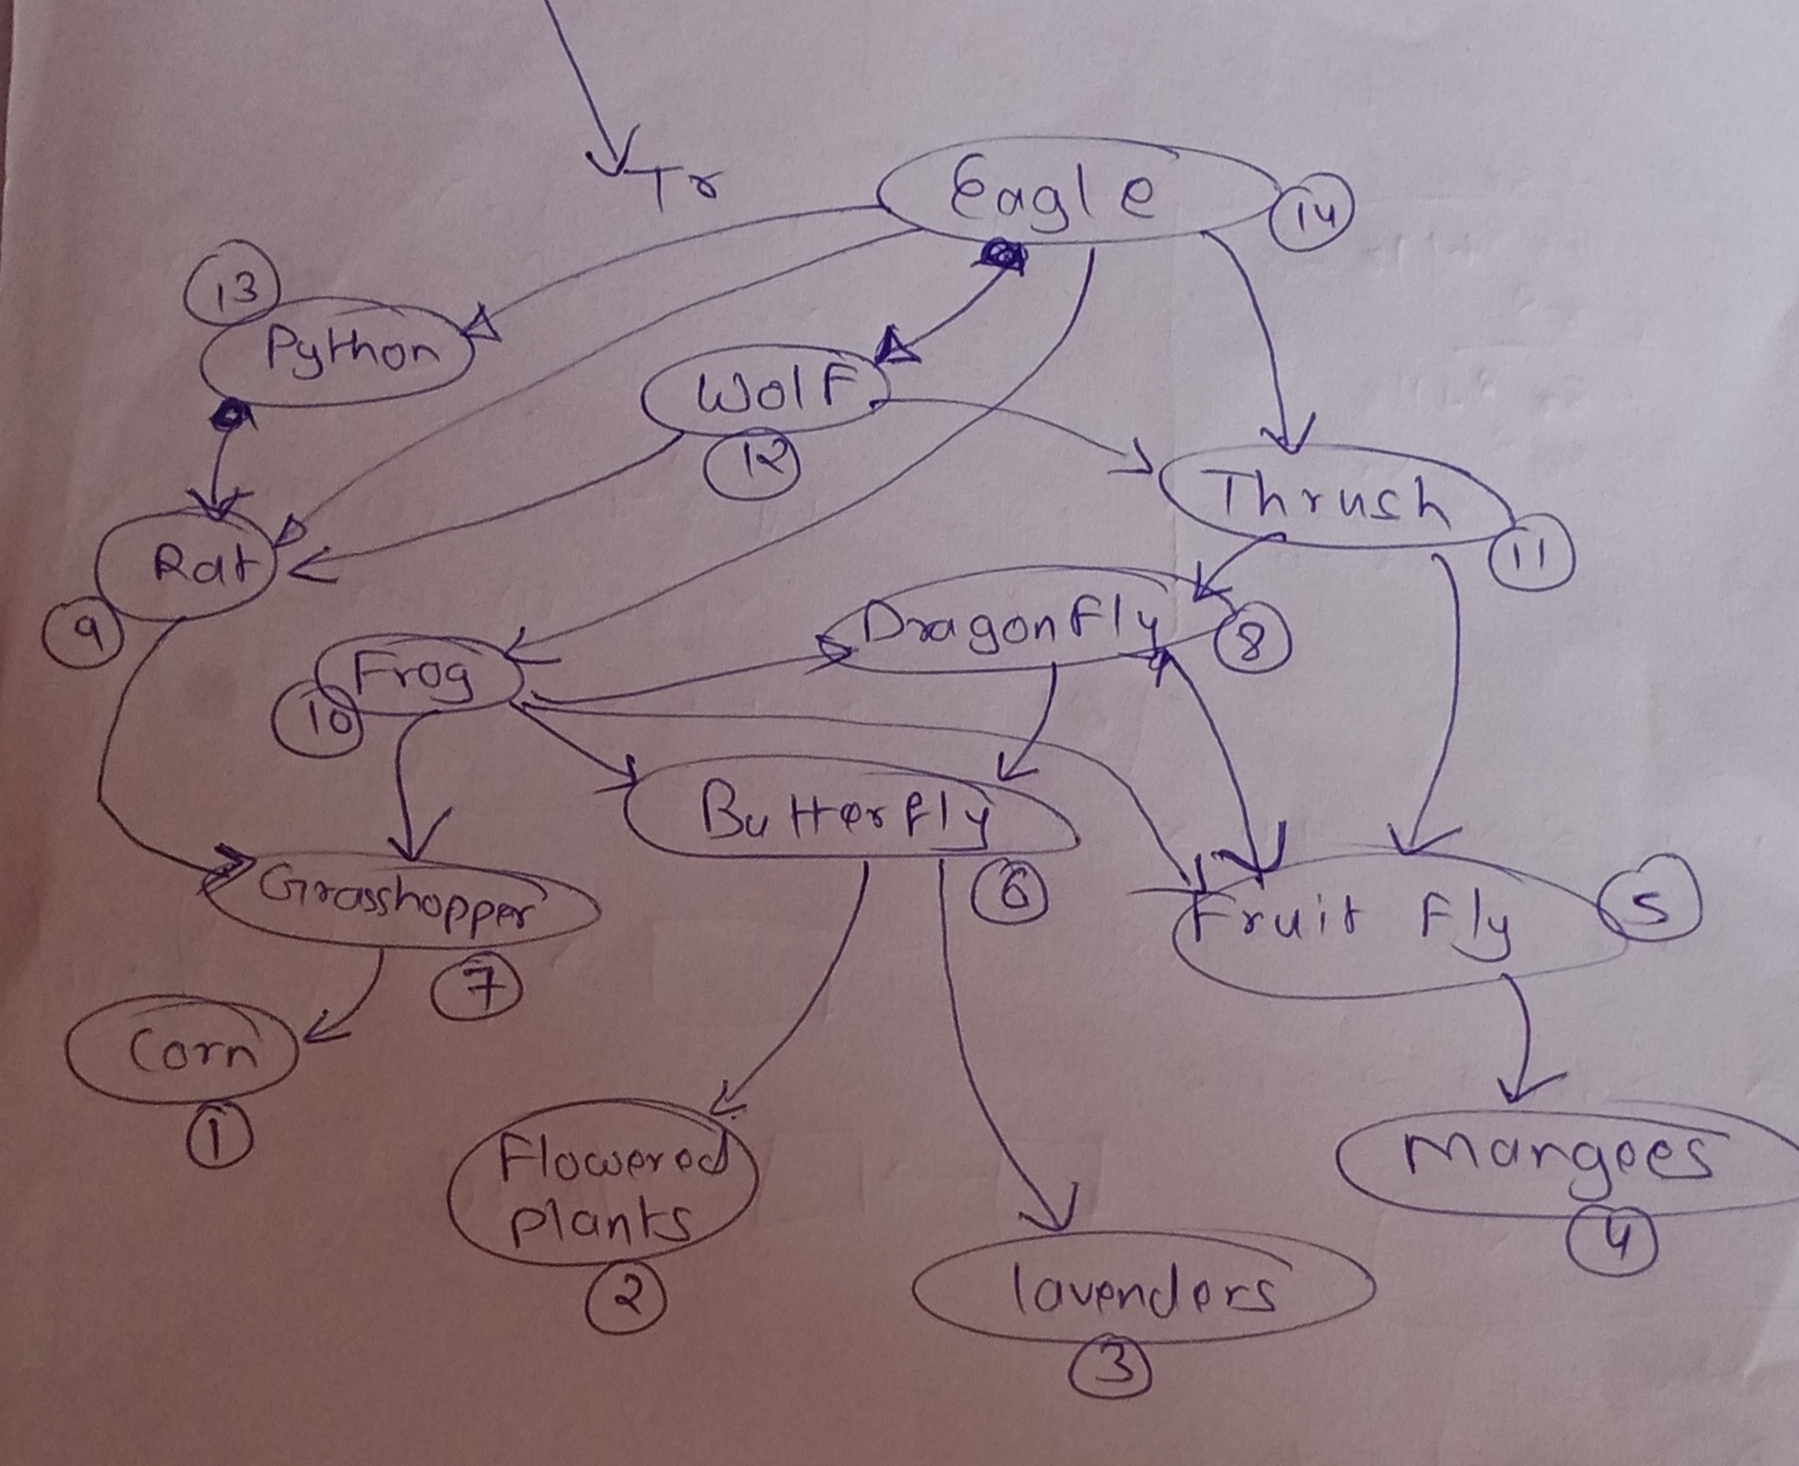 Tr
Eagle
14
13
Python
Wolf
12
Thrush
11
Rat
9
Dragonfly
8
Frog
10
Butterfly
6
Grasshopper
7
Fruit Fly
5
Corn
1
Flowered
plants
2
Mangoes
4
lavenders
3